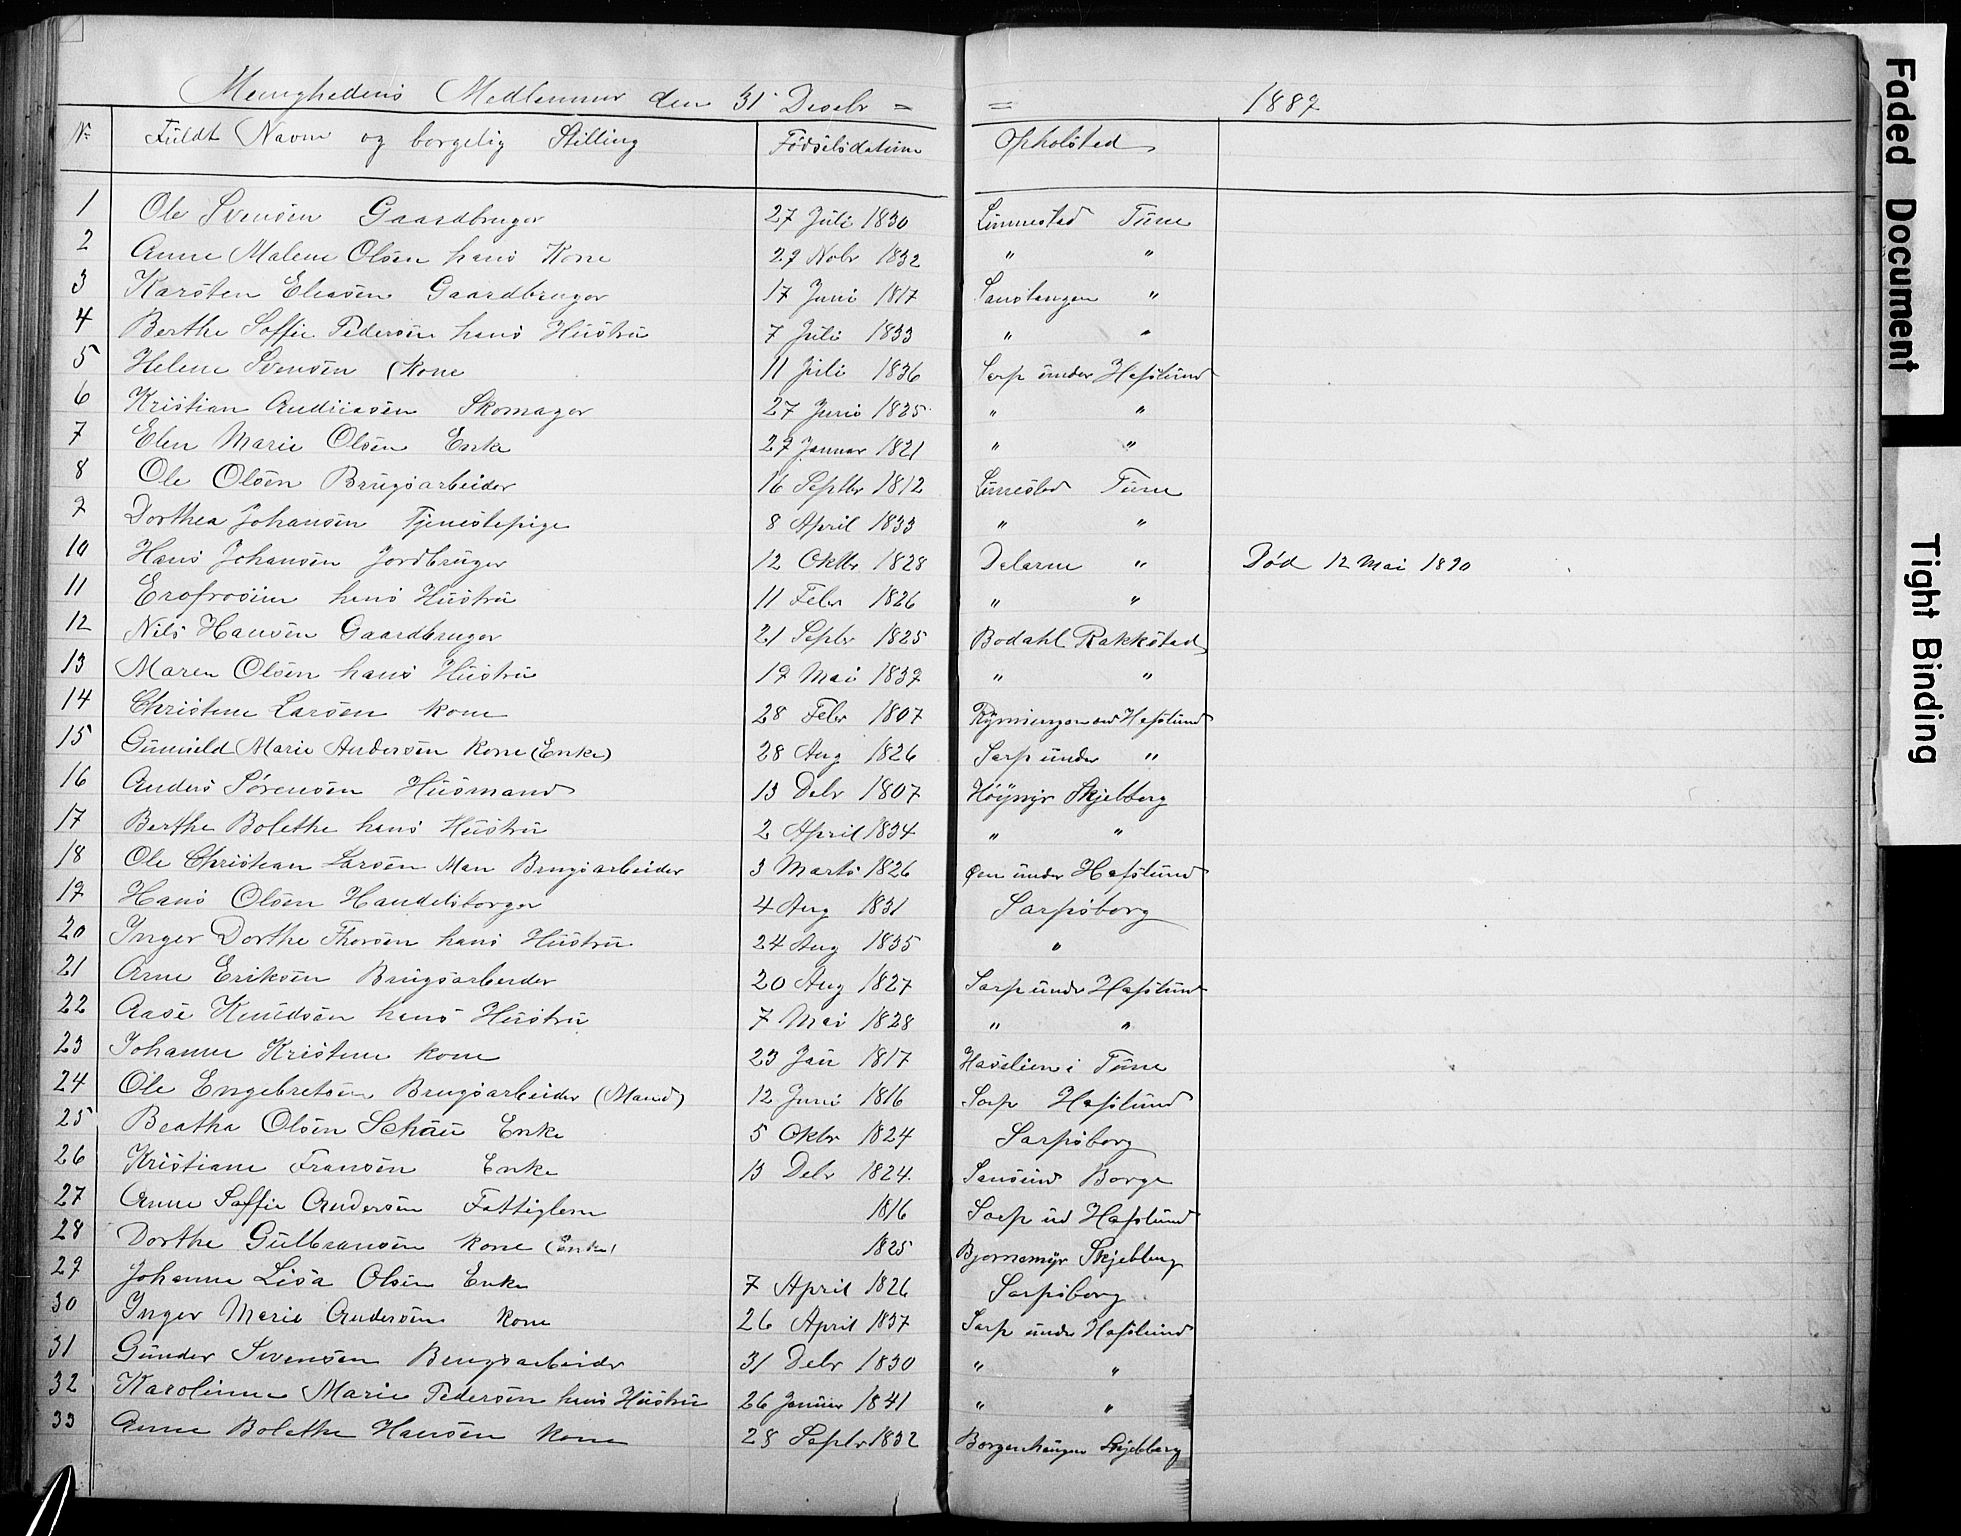 Menighedens Medlemmer den 31 Desebr = = 1889
No Fuldt Navn og borgelig Stilling Fødselsdatum Opholsted
1 Ole Svensen Gaardbruger 27 Juli 1830 Linnestad Tune
2 Anne Malene Olsen hans Kone 29 Nobr 1832 " "
3 Karsten Eliasen Gaardbruger 17 Juni 1817 Sanstangen "
4 Berthe Soffie Pedersen hans Hustru 7 Juli 1833 " "
5 Helene Svensen (Kone 11 Juli 1836 Sarp under Hafslund
6 Kristian Andreasen Skomager 27 Juni 1825 " "
7 Elen Marie Olsen Enke 29 Januar 1821 " "
8 Ole Olsen Brugsarbeider 16 Septbr 1812 Linnestad Tune
9 Dorthea Johansen Tjenestepige 8 April 1833 " "
10 Hans Johansen Jordbruger 12 Oktbr 1828 Dalarne " Død 12 Mai 1890
11 Erofrosine hans Hustru 11 Febr 1826 " "
12 Nils Hansen Gaardbruger 21 Sepbr 1825 Bodahl Rakkestad
13 Maren Olsen hans Hustru 19 Mai 1839 " "
14 Christine Larsen Kone 28 Febr 1807 Hafslund
15 Gunnild Marie Andersen Kone (Enke) 28 Aug 1826 Sarp under "
16 Anders Sørensen Husmand 13 Debr 1807 Høymyr Skjebberg
17 Berthe Bolethe hans Hustru 2 April 1834 " "
18 Ole Christian Larsen Man Brugsarbeider 3 Marts 1826 Øen under Hafslund
19 Hans Olsen Handelsborger 4 Aug 1831 Sarpsborg
20 Inger Dorthe Thorsen hans Hustru 24 Aug 1835 "
21 Arne Eriksen Brugsarbeider 20 Aug 1827 Sarp under Hafslund
22 Aase Knudsen hans Hustru 7 Mai 1828 " "
23 Johanne Kristine Kone 23 Jan 1817 Haslien i Tune
24 Ole Engebretsen Brugsarbeider (Mand) 12 Juni 1816 Sarp Hafslund
25 Beatha Olsen Schau Enke 5 Okbr 1824 Sarpsborg
26 Kristiane Fransen Enke 13 Debr 1824. Sansund Borge
27 Anne Soffie Andersen Fattiglem 1816 Sarp ud Hafslund
28 Dorthe Gulbransen Kone (Enke) 1825 Bjørnemyr Skjebberg
29 Johanne Lisa Olsen Enke 7 April 1826 Sarpsborg
30 Inger Marie Andersen Kone 26 April 1837 Sarp under Hafslund
31 Gunder Svensen Brugsarbeider 31 Debr 1830 " "
32 Karolinne Marie Pedersen hans Hustru 26 Januar 1841 " "
33 Anne Bolethe Hansen Kone 28 Sepbr 1832 Borgenhaugen Skjebberg
Faded Document
Tight Binding